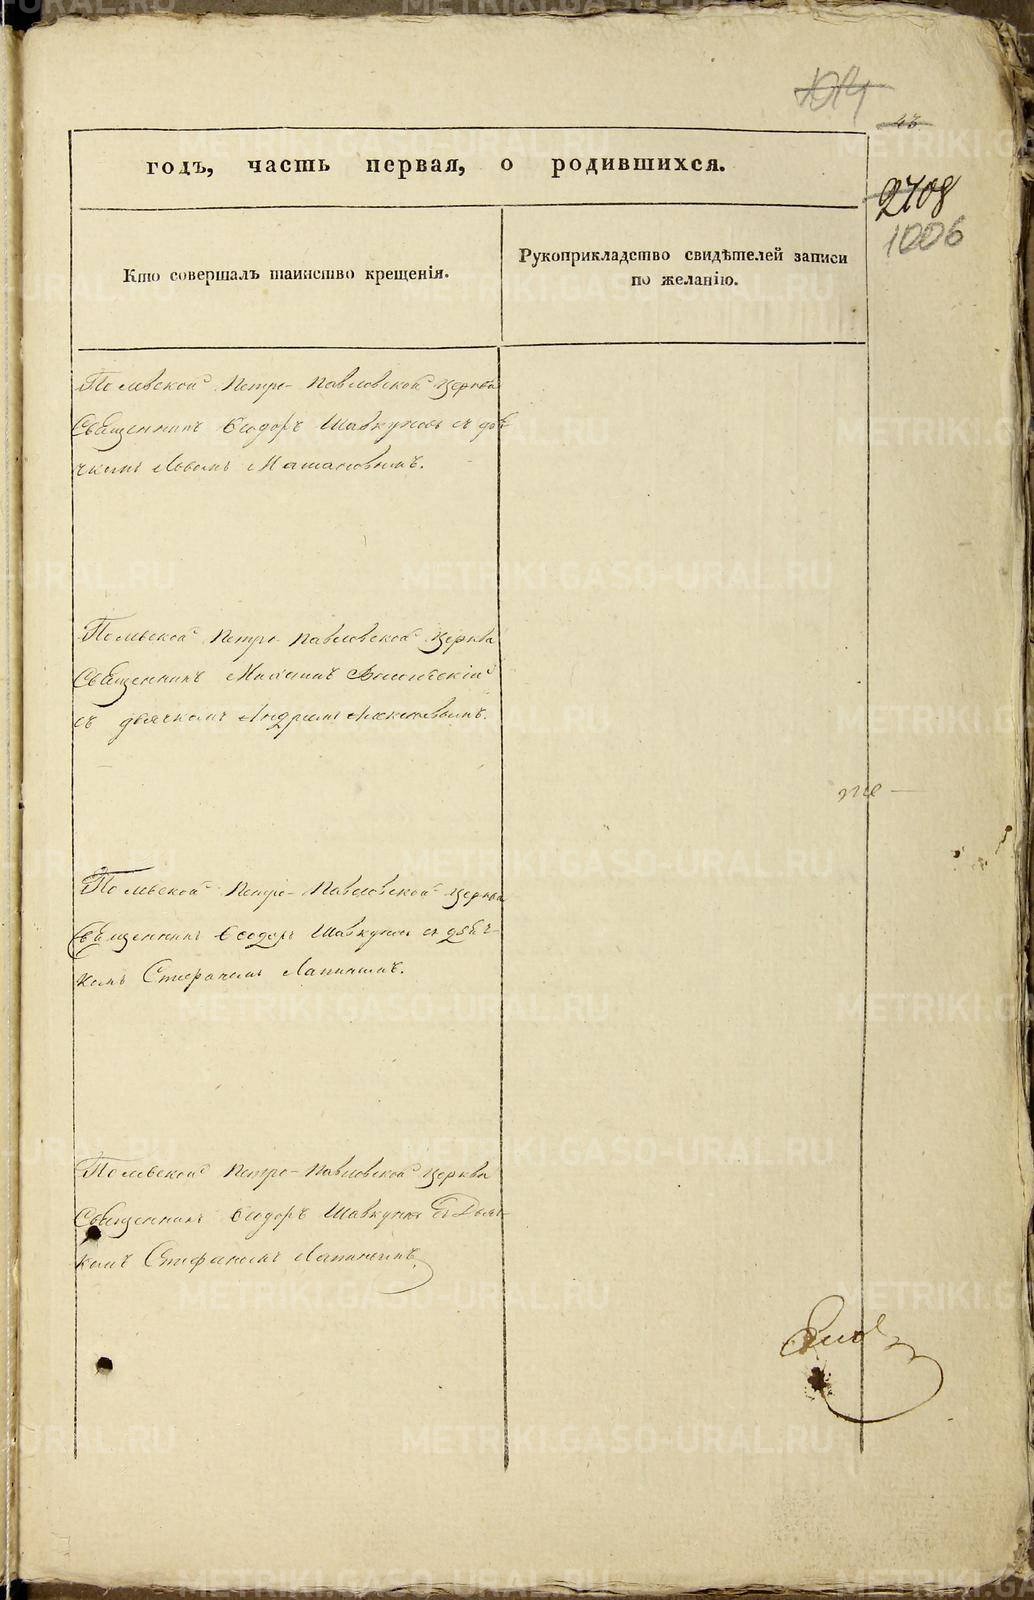 1014
43
годъ, часть первая, о родившихся.
2708
1006
Кто совершалъ таинство крещенія.
Рукоприкладство свидѣтелей записи
по желанію.
Полевской Петро-Павловской Церкви
Священникъ Ѳеодоръ Шавкуновъ съ дья-
чкомъ
Полевской Петро-Павловской Церкви
Священникъ
съ дьячкомъ Андреемъ
Полевской Петро-Павловской Церкви
Священникъ Ѳеодоръ Шавкуновъ съ дьяч-
комъ Стефаномъ Лапинымъ.
Полевской Петро-Павловской Церкви
Священникъ Ѳеодоръ Шавкуновъ съ Дьяч-
комъ Стефаномъ Лапинымъ.
METRIKI.GASO-URAL.RU